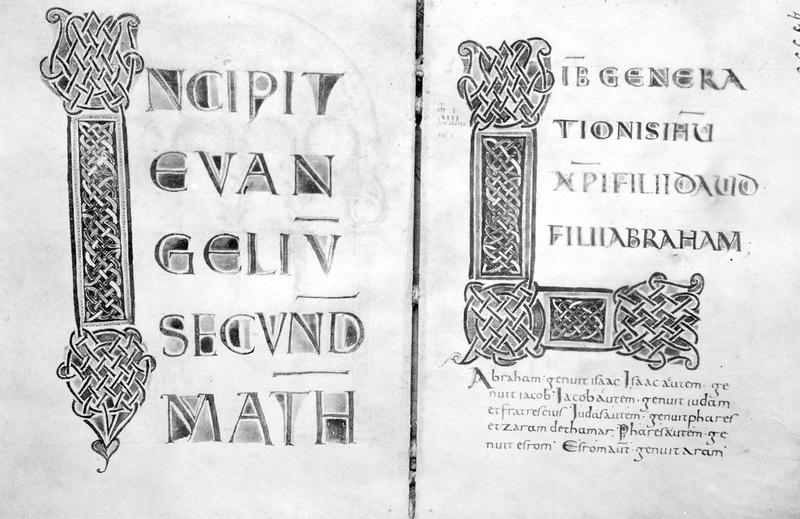 INCIPIT
EVAN
GELIU̅
SECUND̅
MATH̅
LIB̅ GENERA
TIONIS IH̅U
XP̅I FILII DAUID
FILII ABRAHAM;
Abraham · genuit isaac Isaac autem · ge
nuit iacob · Iacob autem · genuit iudam
et fratres eius Iudas autem · genuit phares
et zaram de thamar. Phares autem · ge
nuit esrom Esrom aut̅ · genuit aram